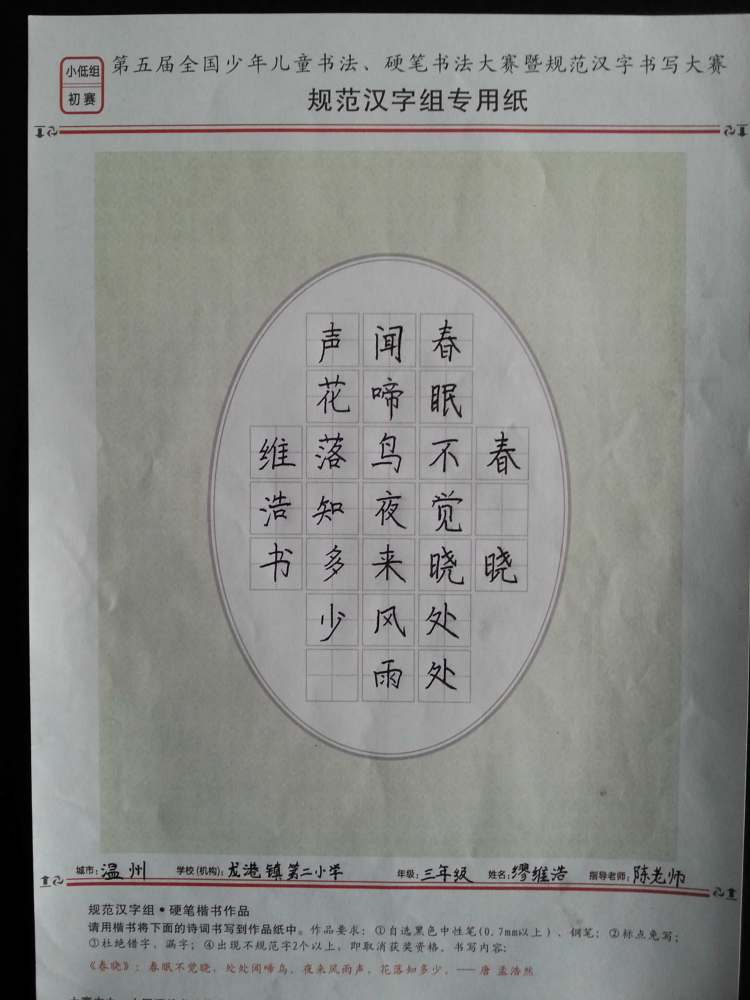 小低组
初赛
第五届全国少年儿童书法、硬笔书法大赛暨规范汉字书写大赛
规范汉字组专用纸
春晓
春眠不觉晓处处
闻啼鸟夜来风雨
声花落知多少
维浩书
城市：温州 学校(机构)：龙港镇第二小学 年级：三年级 姓名：缪维浩 指导老师：陈老师
规范汉字组•硬笔楷书作品
请用楷书将下面的诗词书写到作品纸中。作品要求：①自选黑色中性笔(0.7mm以上)、钢笔；②标点免写；
③杜绝错字、漏字；④出现不规范字2个以上，即取消获奖资格。书写内容：
《春晓》：春眠不觉晓，处处闻啼鸟。夜来风雨声，花落知多少。——唐 孟浩然